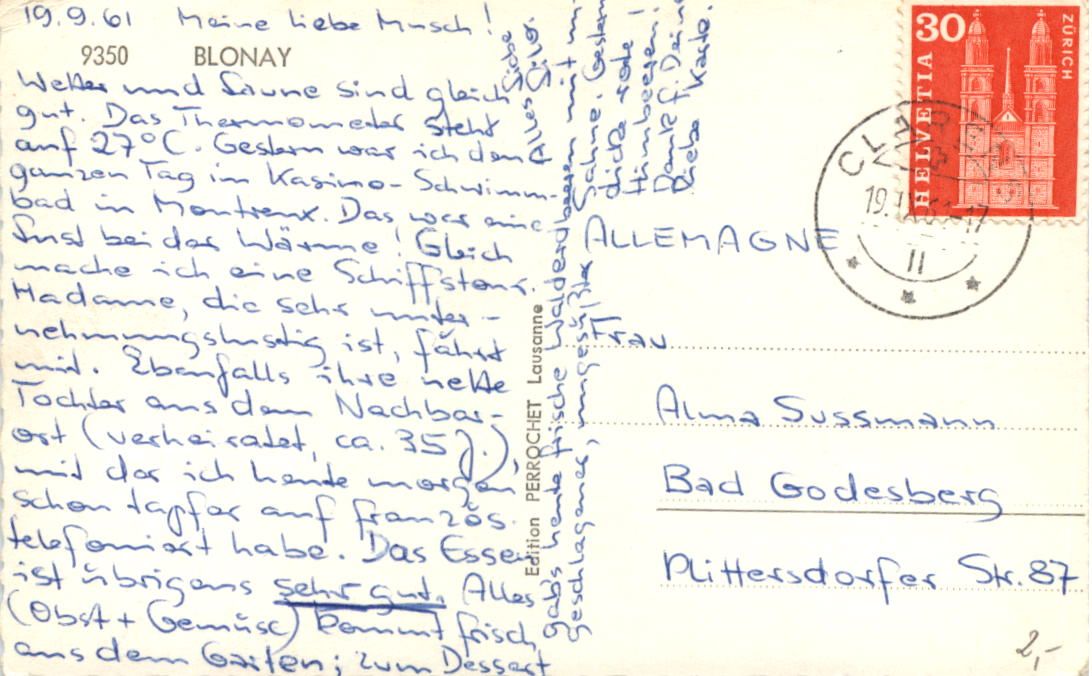 19.9.61 Meine liebe Musch!
9350 BLONAY
Wetter und Laune sind gleich
gut. Das Thermometer steht
auf 27°C. Gestern war ich den
ganzen Tag im Kasino-Schwimm-
bad in Montreux. Das war eine
Lust bei der Wärme! Gleich
mache ich eine Schiffstour.
Madame, die sehr unter-
nehmungslustig ist, fährt
mit. Ebenfalls ihre nette
Tochter aus dem Nachbar-
ort (verheiratet, ca. 35 J.),
mit der ich heute morgen
schon tapfer auf französ.
telefoniert habe. Das Essen
ist übrigens sehr gut. Alles
(Obst + Gemüse) kommt frisch
aus dem Garten; zum Dessert
gab's heute frische Walderdbeeren mit un-
geschlagener, ungesüßter Sahne. Gestern
dicke rote
Himbeeren!
Dank f. Deine
liebe Karte.
Alles Liebe
Edition PERROCHET Lausanne
HELVETIA 30 ZÜRICH
CLARENS
II
ALLEMAGNE
Frau
Alma Sussmann
Bad Godesberg
Plittersdorfer Str. 87
2,-